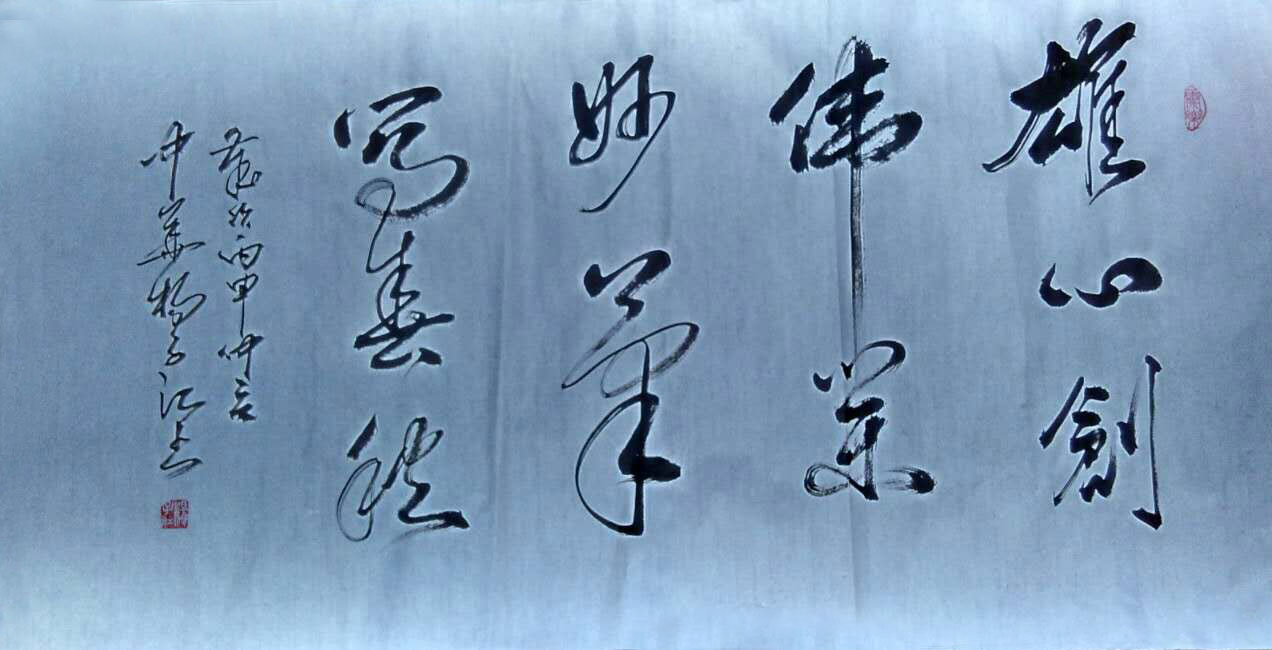 雄心創
偉業
妙筆
寫春秋
歲於丙申仲
中華楊子江書